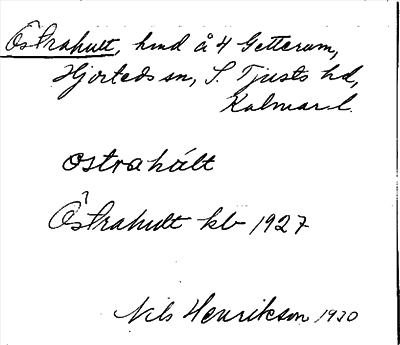 Östrahult, hmd å 4 Getterum,
Hjorteds sn, S. Tjusts hd,
Kalmar l.
ostrahúlt
Östrahult kb 1927
Nils Henrikson 1930